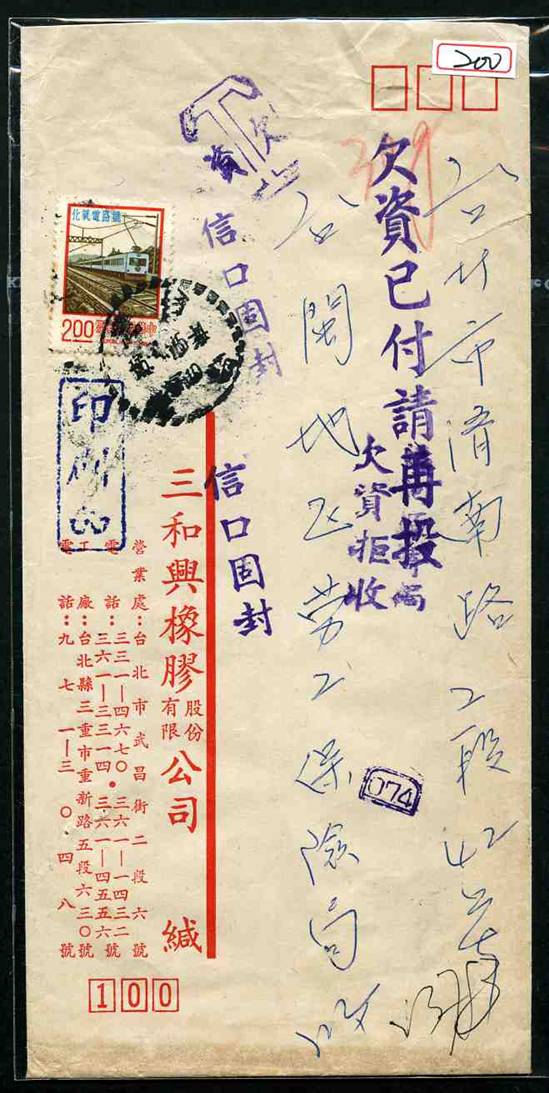 200
台北市濟南路2段42號
台閩地区劳工保險局收
欠資已付請再投
欠資拒收
T
欠資
信口固封
信口固封
074
鐵路電氣化
200
印刷品
三和興橡膠股份有限公司 緘
營業處：台北市武昌街二段六號
電話：三三一—四六七〇・三六一—一四三二
三六一—三三一四・三六一—四五五六號
工廠：台北縣三重市重新路五段六三〇號
電話：九七一—三〇四八號
100